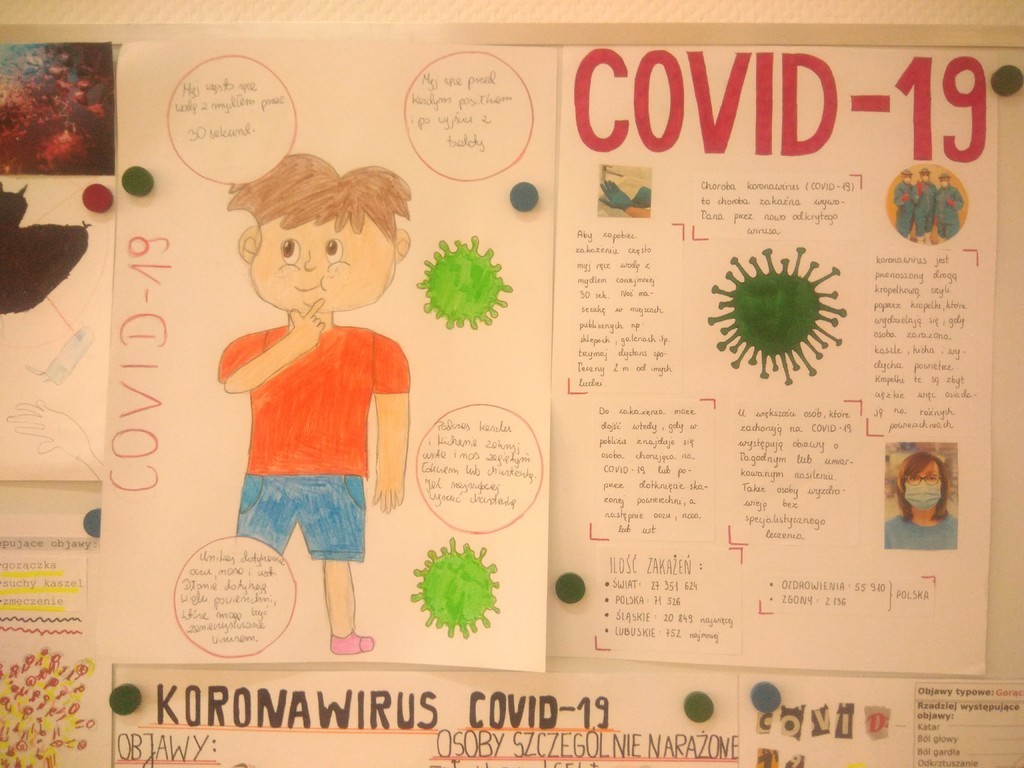 Myj często ręce
wodą z mydłem przez
30 sekund.
Myj ręce przed
każdym posiłkiem
i po wyjściu z
toalety
COVID-19
Podczas kaszlu
i kichania zakryj
usta i nos zgiętym
łokciem lub chusteczką.
Jak najszybciej
wyrzuć chusteczkę
Unikaj dotykania
oczu, nosa i ust.
Dłonie dotykają
wielu powierzchni,
które mogą być
zanieczyszczone
wirusem.
COVID-19
Choroba koronawirus (COVID-19)
to choroba zakaźna wywo-
łana przez nowo odkrytego
wirusa
Aby zapobiec
zakażeniu często
myj ręce wodą z
mydłem conajmniej
30 sek. Noś ma-
seczkę w miejscach
publicznych np.
sklepach, galeriach itp.
trzymaj dystans spo-
łeczny 2 m od innych
ludzi
koronawirus jest
przenoszony drogą
kropelkową czyli
poprzez kropelki, które
wydzielają się, gdy
osoba zarażona
kaszle, kicha, wy-
dycha powietrze.
Kropelki te są zbyt
ciężkie więc osiada-
ją na różnych
powierzchniach
Do zakażenia może
dojść wtedy, gdy w
pobliżu znajduje się
osoba chorująca na
COVID-19 lub po-
przez dotknięcie ska-
żonej powierzchni, a
następnie oczu, nosa
lub ust
U większości osób, które
zachorują na COVID-19
występują objawy o
łagodnym lub umiar-
kowanym nasileniu.
Takie osoby wyzdro-
wieją bez
specjalistycznego
leczenia
ILOŚĆ ZAKAŻEŃ:
• ŚWIAT: 27 351 624
• POLSKA: 71 526
• ŚLĄSKIE: 20 849 najwięcej
• LUBUSKIE: 752 najmniej
• OZDROWIENIA: 55 910
• ZGONY: 2 136
POLSKA
ępujące objawy:
gorączka
suchy kaszel
zmęczenie
KORONAWIRUS COVID-19
OBJAWY:
OSOBY SZCZEGÓLNIE NARAŻONE
COVID-
Objawy typowe: Gorąc
Rzadziej występujące
objawy:
Katar
Ból głowy
Ból gardła
Odkrztuszanie